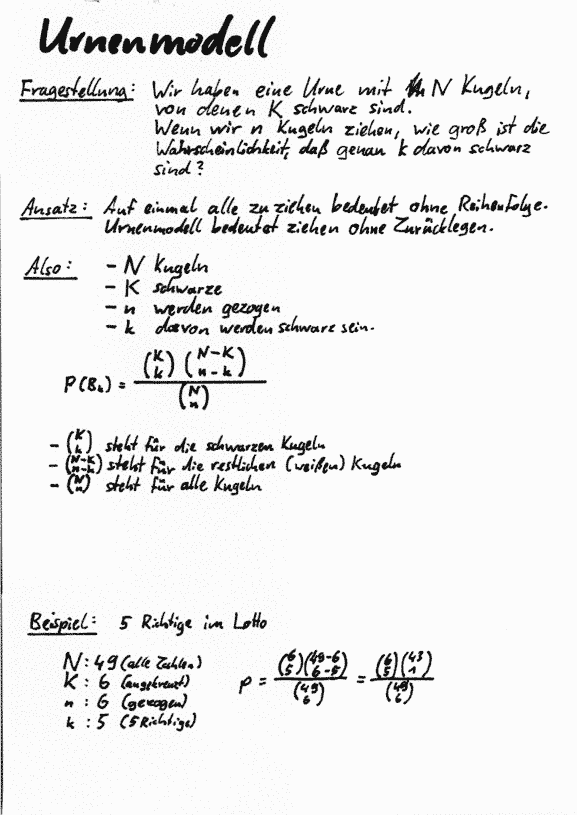 Urnenmodell
Fragestellung: Wir haben eine Urne mit N Kugeln,
von denen K schwarz sind.
Wenn wir n Kugeln ziehen, wie groß ist die
Wahrscheinlichkeit, daß genau k davon schwarz
sind?
Ansatz: Auf einmal alle zu ziehen bedeutet ohne Reihenfolge.
Urnenmodell bedeutet ziehen ohne Zurücklegen.
Also: - N Kugeln
- K schwarze
- n werden gezogen
- k davon werden schwarz sein.
P(B_k) = (K über k) (N-K über n-k) / (N über n)
- (K über k) steht für die schwarzen Kugeln
- (N-K über n-k) steht für die restlichen (weißen) Kugeln
- (N über n) steht für alle Kugeln
Beispiel: 5 Richtige im Lotto
N: 49 (alle Zahlen)
K: 6 (angekreuzt)
n: 6 (gezogen)
k: 5 (5 Richtige)
p = (6 über 5)(49-6 über 6-5) / (49 über 6) = (6 über 5)(43 über 1) / (49 über 6)